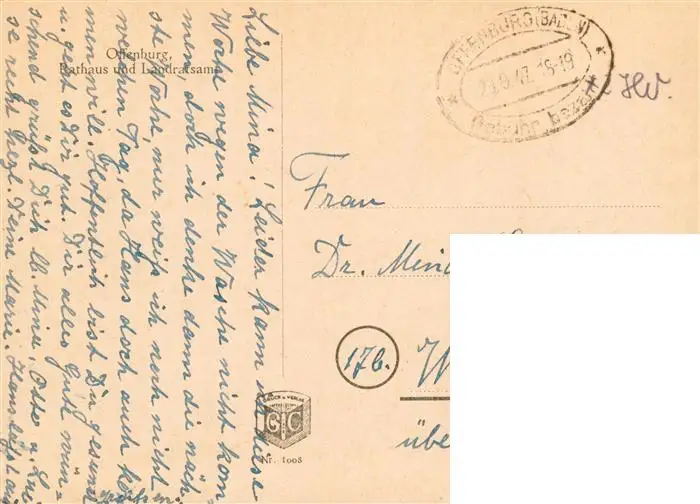 Offenburg,
Rathaus und Landratsamt
Liebe Mina! Leider kann ich diese
Woche wegen der Wäsche nicht kom
men, doch ich denke dann die näch
ste Woche, nur weiß ich noch nicht
welchen Tag, da Hans doch auch
men will. Hoffentlich bist Du gesund
u. geht es Dir gut. Dir alles Gute wün-
schend grüßt Dich lb. Mina, Otto u.
se recht herzl. Deine Marie. Hans läßt
grüßen.
OFFENBURG (BADEN)
23.9.47.18-19
Gebühr bezahlt
HW.
Frau
Dr. Min
17b. W
übe
DRUCK U. VERLAG
G C
Nr. 1008